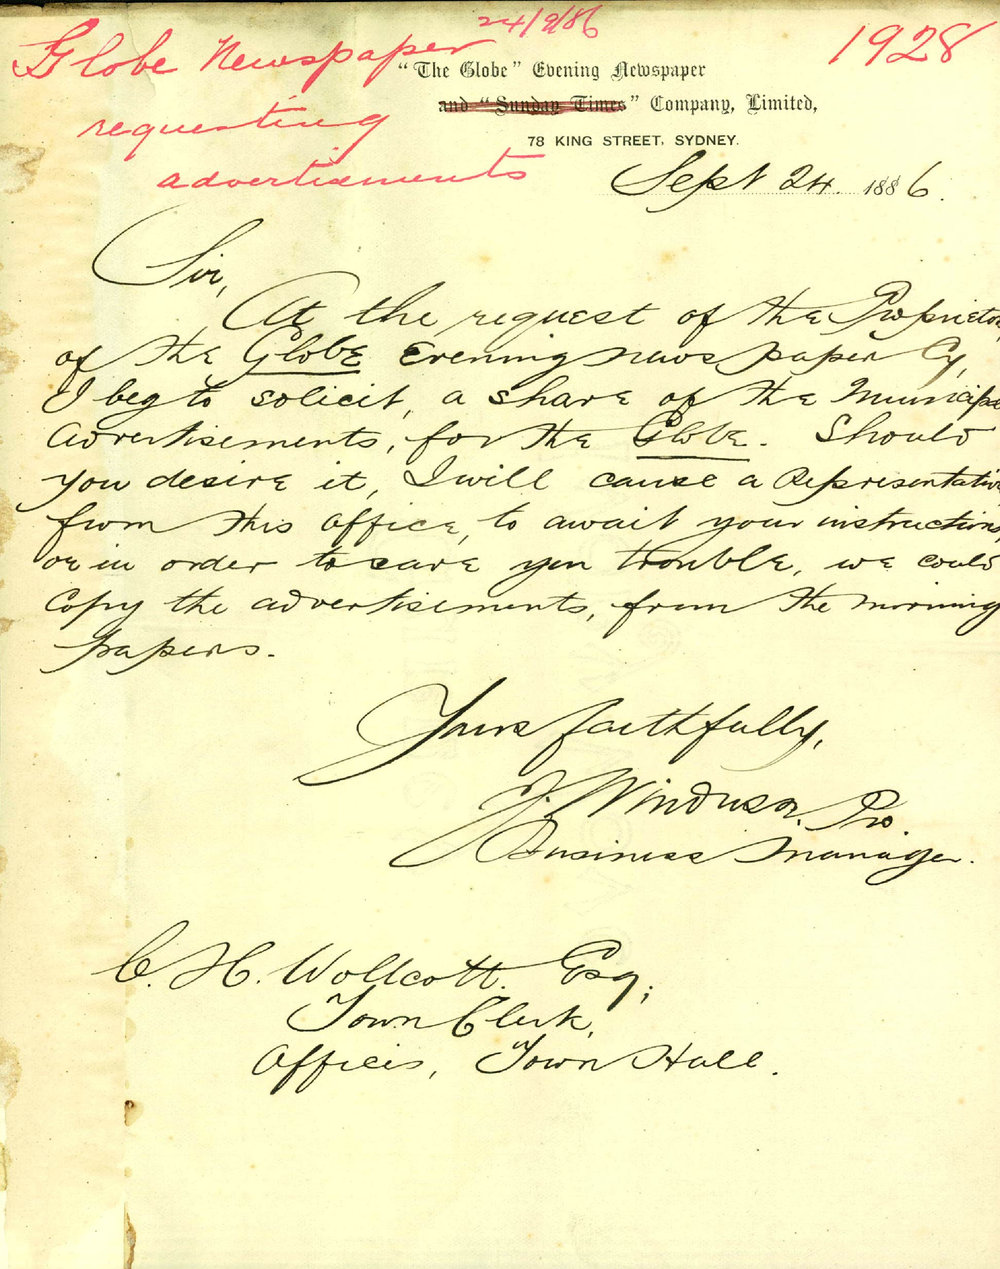 24/9/86
Globe Newspaper
requesting
advertisements
1928
"The Globe" Evening Newspaper
and "Sunday Times" Company, Limited,
78 KING STREET, SYDNEY.
Sept 24. 1886.
Sir,
At the request of the Proprietors
of the Globe Evening newspaper Cy,
I beg to solicit, a share of the Municipal
advertisements, for the Globe. Should
you desire it, I will cause a Representative
from this office, to await your instructions,
or in order to save you trouble, we could
copy the advertisements, from the morning
papers.
Yours faithfully,
Pro.
Business Manager.
C. H. Wollcott. Esq;
Town Clerk,
Offices, Town Hall.